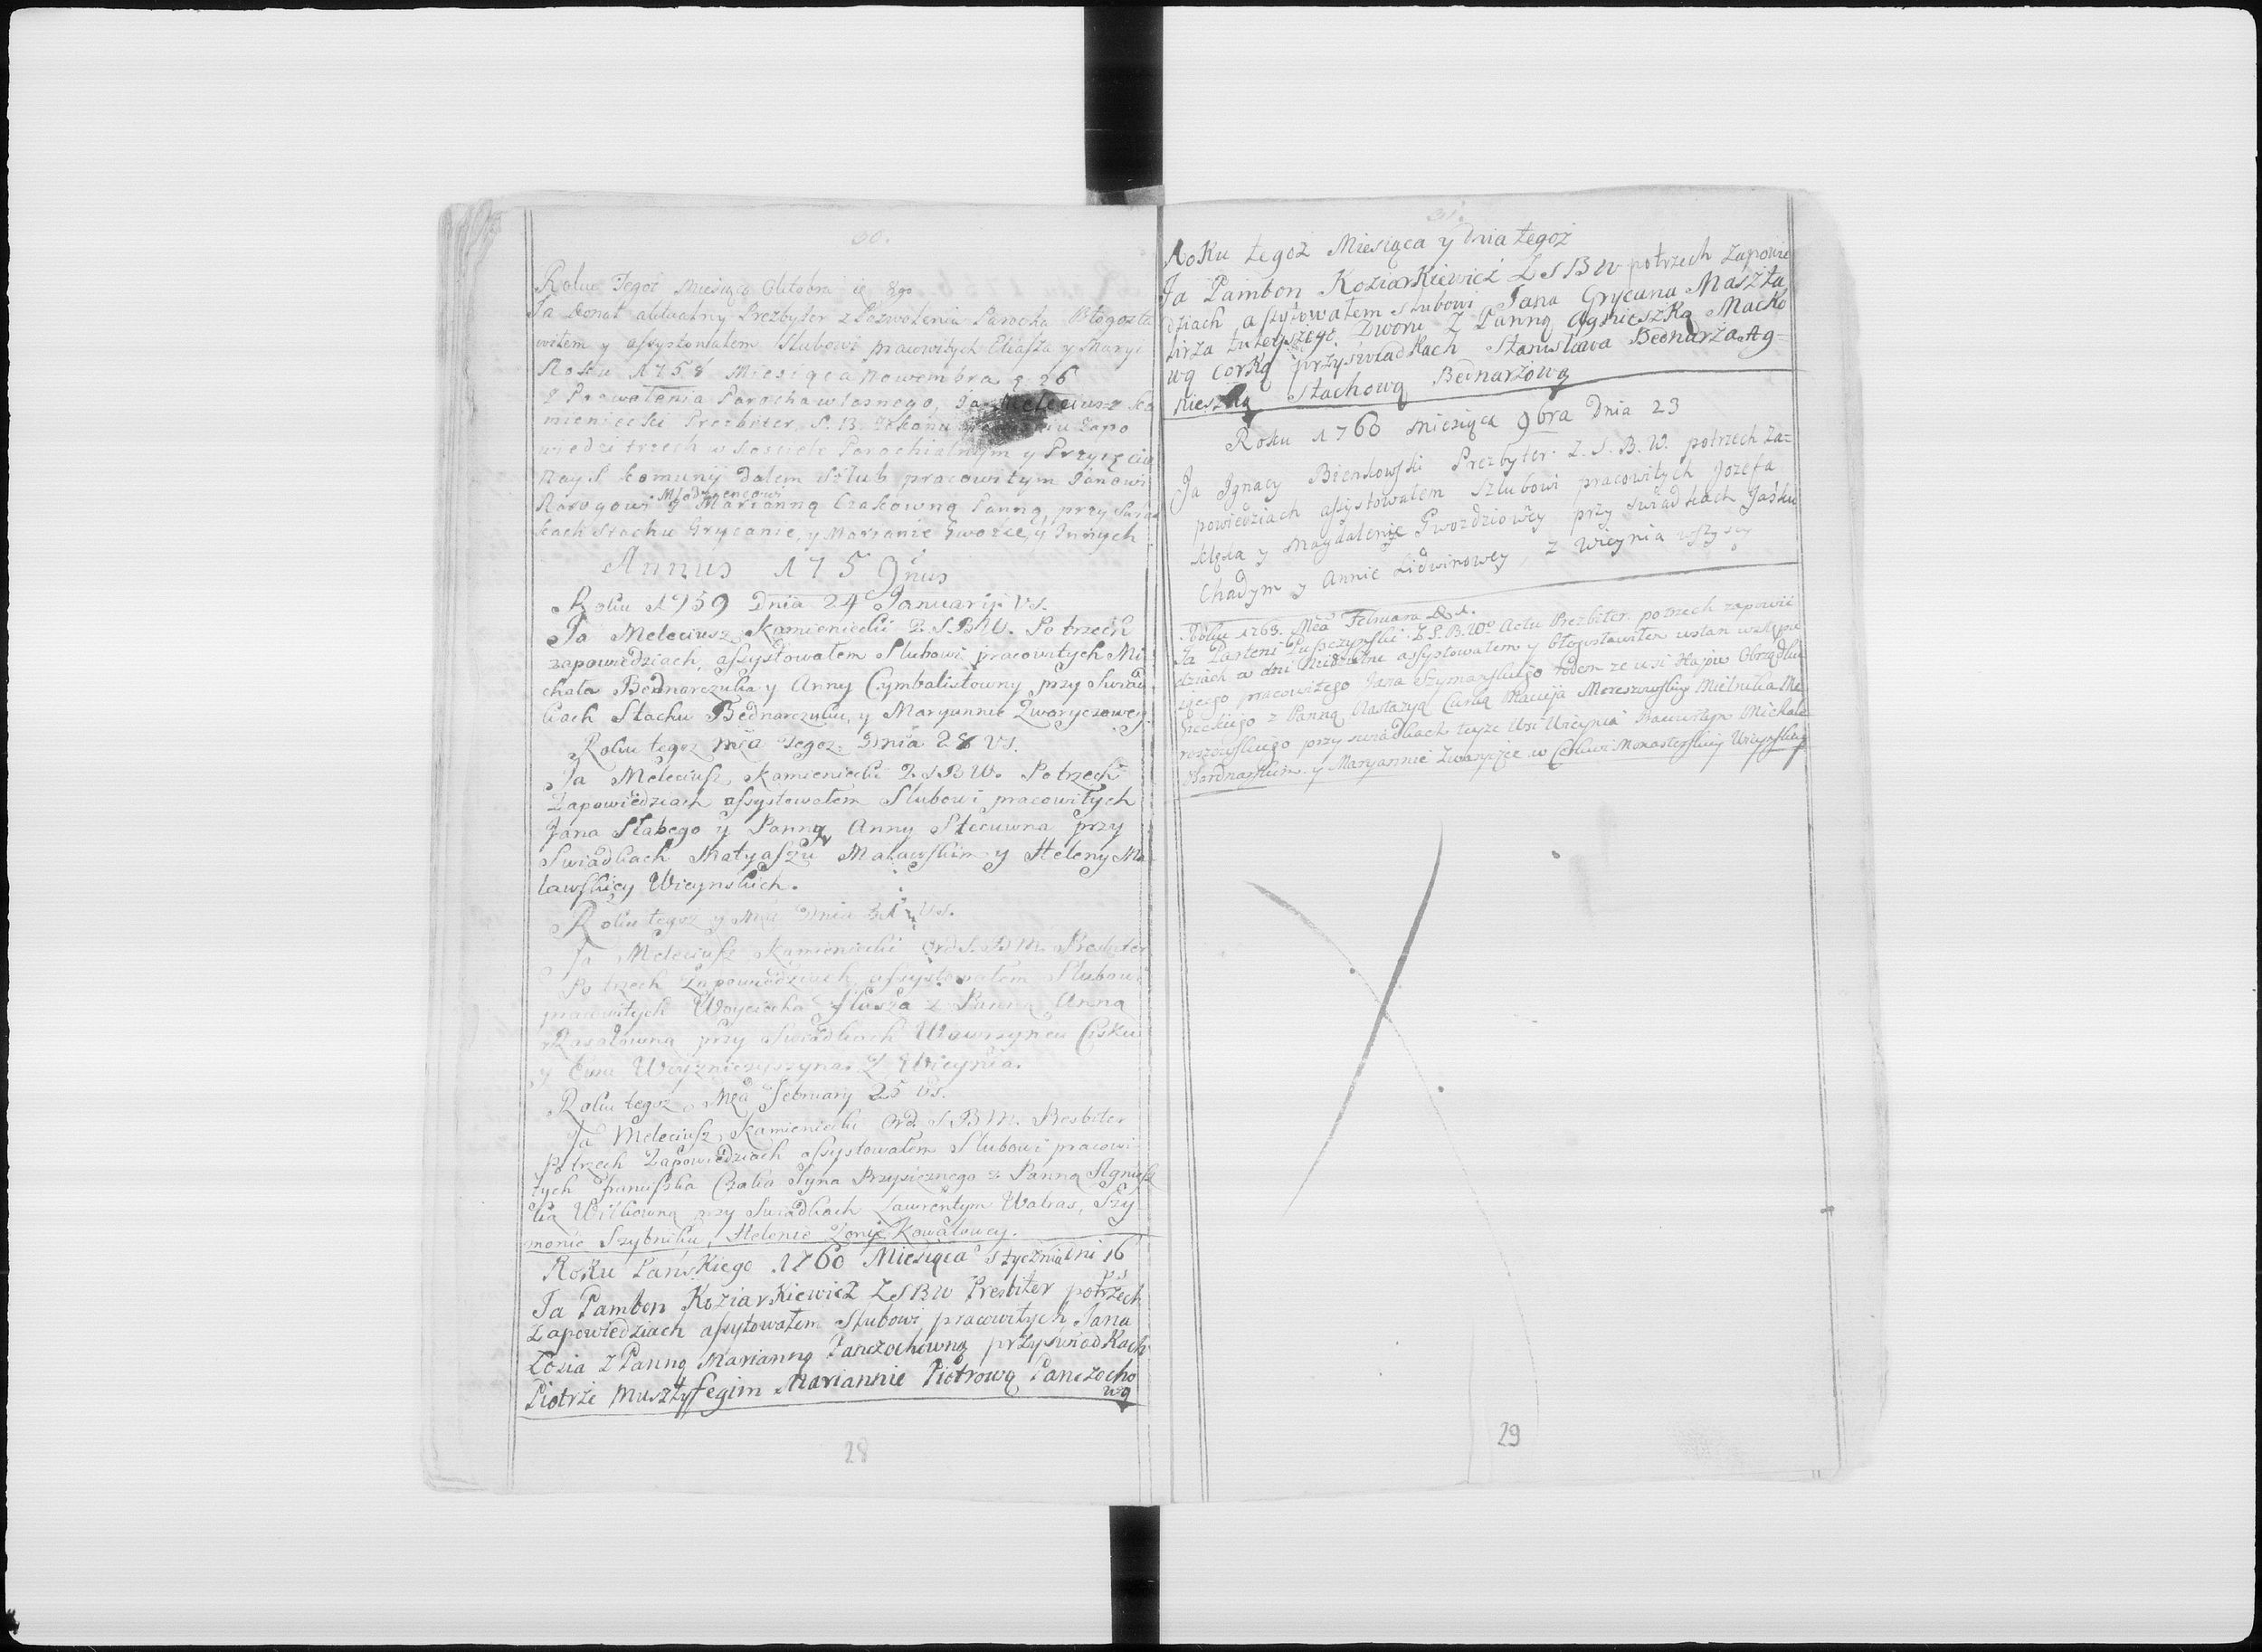 30.
Roku Tegoż Miesiąca Oktobra 8go
Ja Donat aktualny Prezbyter z Pozwolenia Parocha Błogosła
wiłem y assystowałem Slubowi pracowitych Eliasza y Maryi
Roku 1758 Miesiąca Nowembra 26
Z Pozwolenia Parocha własnego, Ja Meleciusz Ka
mieniecki Prezbiter S. B. zapo
wiedzi trzech w kosciele Parochialnym y Przyięciu
Nays. komunij dałem Szlub pracowitym Janowi
Młodziencowi
Rarogowi y Marianną Czakowną Panną, przy Swiad
kach Stachu Grycanie, y Marianie y Innych
Annus 1759nus
Roku 1759 Dnia 24 Januarij VS.
Ja Meleciusz Kamieniecki Z.S.B.W. Po trzech
zapowiedziach, assystowałem Slubowi pracowitych Mi
chała Bednarczuka y Anny Cymbalistowny przy Swiad
kach Stachu Bednarczuku, y Maryannie Zwaryczowey.
Roku tegoz Mca tegoz Dnia 28 VS.
Ja Meleciusz Kamieniecki Z.S.B.W. Po trzech
Zapowiedziach assystowałem Slubowi pracowitych
Jana Słabego y Panną Anny Stecuwna przy
Swiadkach Matyaszu Maławskim y Heleny Ma
ławskiey Wicynskich.
Roku tegoz y Mca Dnia 31 VS.
Ja Meleciusz Kamieniecki Ord. S.B.M. Presbyter
Po trzech Zapowiedziach assystowałem Slubowi
pracowitych Woyciecha z Panną Anną
przy Swiadkach Wawrzyncu Cisku
y Ewa z Wicynia.
Roku tegoz Mca February 25 VS.
Ja Meleciusz Kamieniecki Ord. S.B.M. Presbiter
Po trzech Zapowiedziach assystowałem Slubowi pracowi
tych Franciszka Czaka Syna Przysiężnego z Panną Agniesz
ką Wilkowną przy Swiadkach Lawrentym Walras, Szy
monie Szybniku, Helenie Zonie Kowalowey.
Roku Pańskiego 1760 Miesiąca Stycznia Dni 16
Ja Pambon Koziarkiewicz ZSBW Presbiter potrzech
Zapowiedziach assytowałem Slubowi pracowitych Jana
Łosia z Panną Marianną Panczochowną przyswiadkach
Piotrze Musztyfegim Mariannie Piotrową Panczocho
wą
28
31.
Roku tegoż Miesiąca y Dnia tegoż
Ja Pambon Koziarkiewicz ZSBW potrzech Zapowie
dziach assystowałem Slubowi Jana Grycana Maszta
lirza tuteyszego Dworu z Panną Agnieszką Macko
wą corką przyswiadkach Stanisława Bednarza Ag-
nieszką Stachową Bednarzową
Roku 1760 Miesiąca 9bra Dnia 23
Ja Ignacy Bienkowski Prezbyter Z.S.B.W. potrzech Za=
powiedziach assystowałem Szlubowi pracowitych Jozefa
y Magdalenie Gwozdziowey przy swiadkach Jasku
Chadym y Annie Lidwinowey, z Wicynia wszyscy
Roku 1763. Mca Februara D. 1.
Ja Parteni Z.S.B.W. Actu Prezbiter potrzech zapowie
dziach w dni Niedzielne assystowałem y błogosławiłem wstan
iącego pracowitego Jana Szymanskiego rodem ze wsi Hajow Obrządku
Greckiego z Panną Nastazyą Curką Macieja Moroszowskiego Mielnika Mo
roszowskiego przy swiadkach teyże Wsi Wicynia Pracowitym Michale
Bednarskim y Maryannie Zwaryczce w Cerkwi Monasterskiey Wicynskiey
29